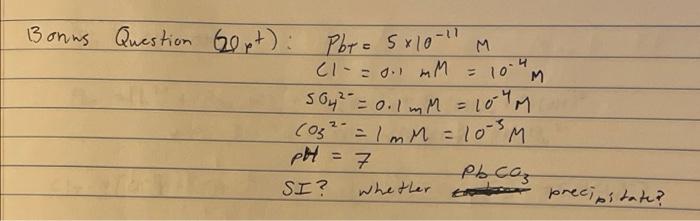 Bonus Question (20pt): PbT = 5 x 10^-11 M
Cl- = 0.1 mM = 10^-4 M
SO4^2- = 0.1 mM = 10^-4 M
CO3^2- = 1 mM = 10^-3 M
pH = 7
SI? whether PbCO3 precipitate?